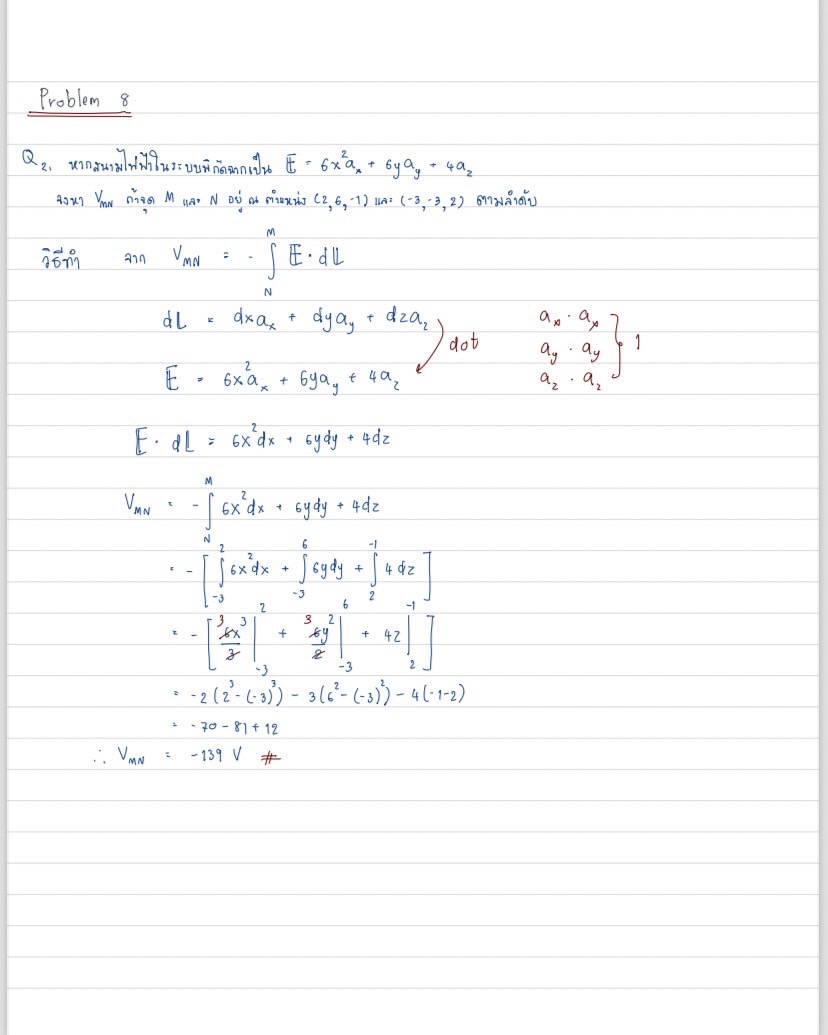 Problem 8
Q2. หากสนามไฟฟ้าในระบบพิกัดฉากเป็น E = 6x²aₓ + 6ya_y + 4a_z
จงหา V_MN ถ้าจุด M และ N อยู่ ณ ตำแหน่ง (2, 6, -1) และ (-3, -3, 2) ตามลำดับ
วิธีทำ จาก V_MN = - ∫_N^M E · dL
dL = dxaₓ + dya_y + dza_z
dot
aₓ · aₓ
a_y · a_y
a_z · a_z
} 1
E = 6x²aₓ + 6ya_y + 4a_z
E · dL = 6x²dx + 6ydy + 4dz
V_MN = - ∫_N^M 6x²dx + 6ydy + 4dz
= - [ ∫_-3^2 6x²dx + ∫_-3^6 6ydy + ∫_2^-1 4dz ]
= - [ 3 6x³/3 |_-3^2 + 3 6y²/2 |_-3^6 + 4z |_2^-1 ]
= -2(2³ - (-3)³) - 3(6² - (-3)²) - 4(-1-2)
= -70 - 81 + 12
∴ V_MN = -139 V #